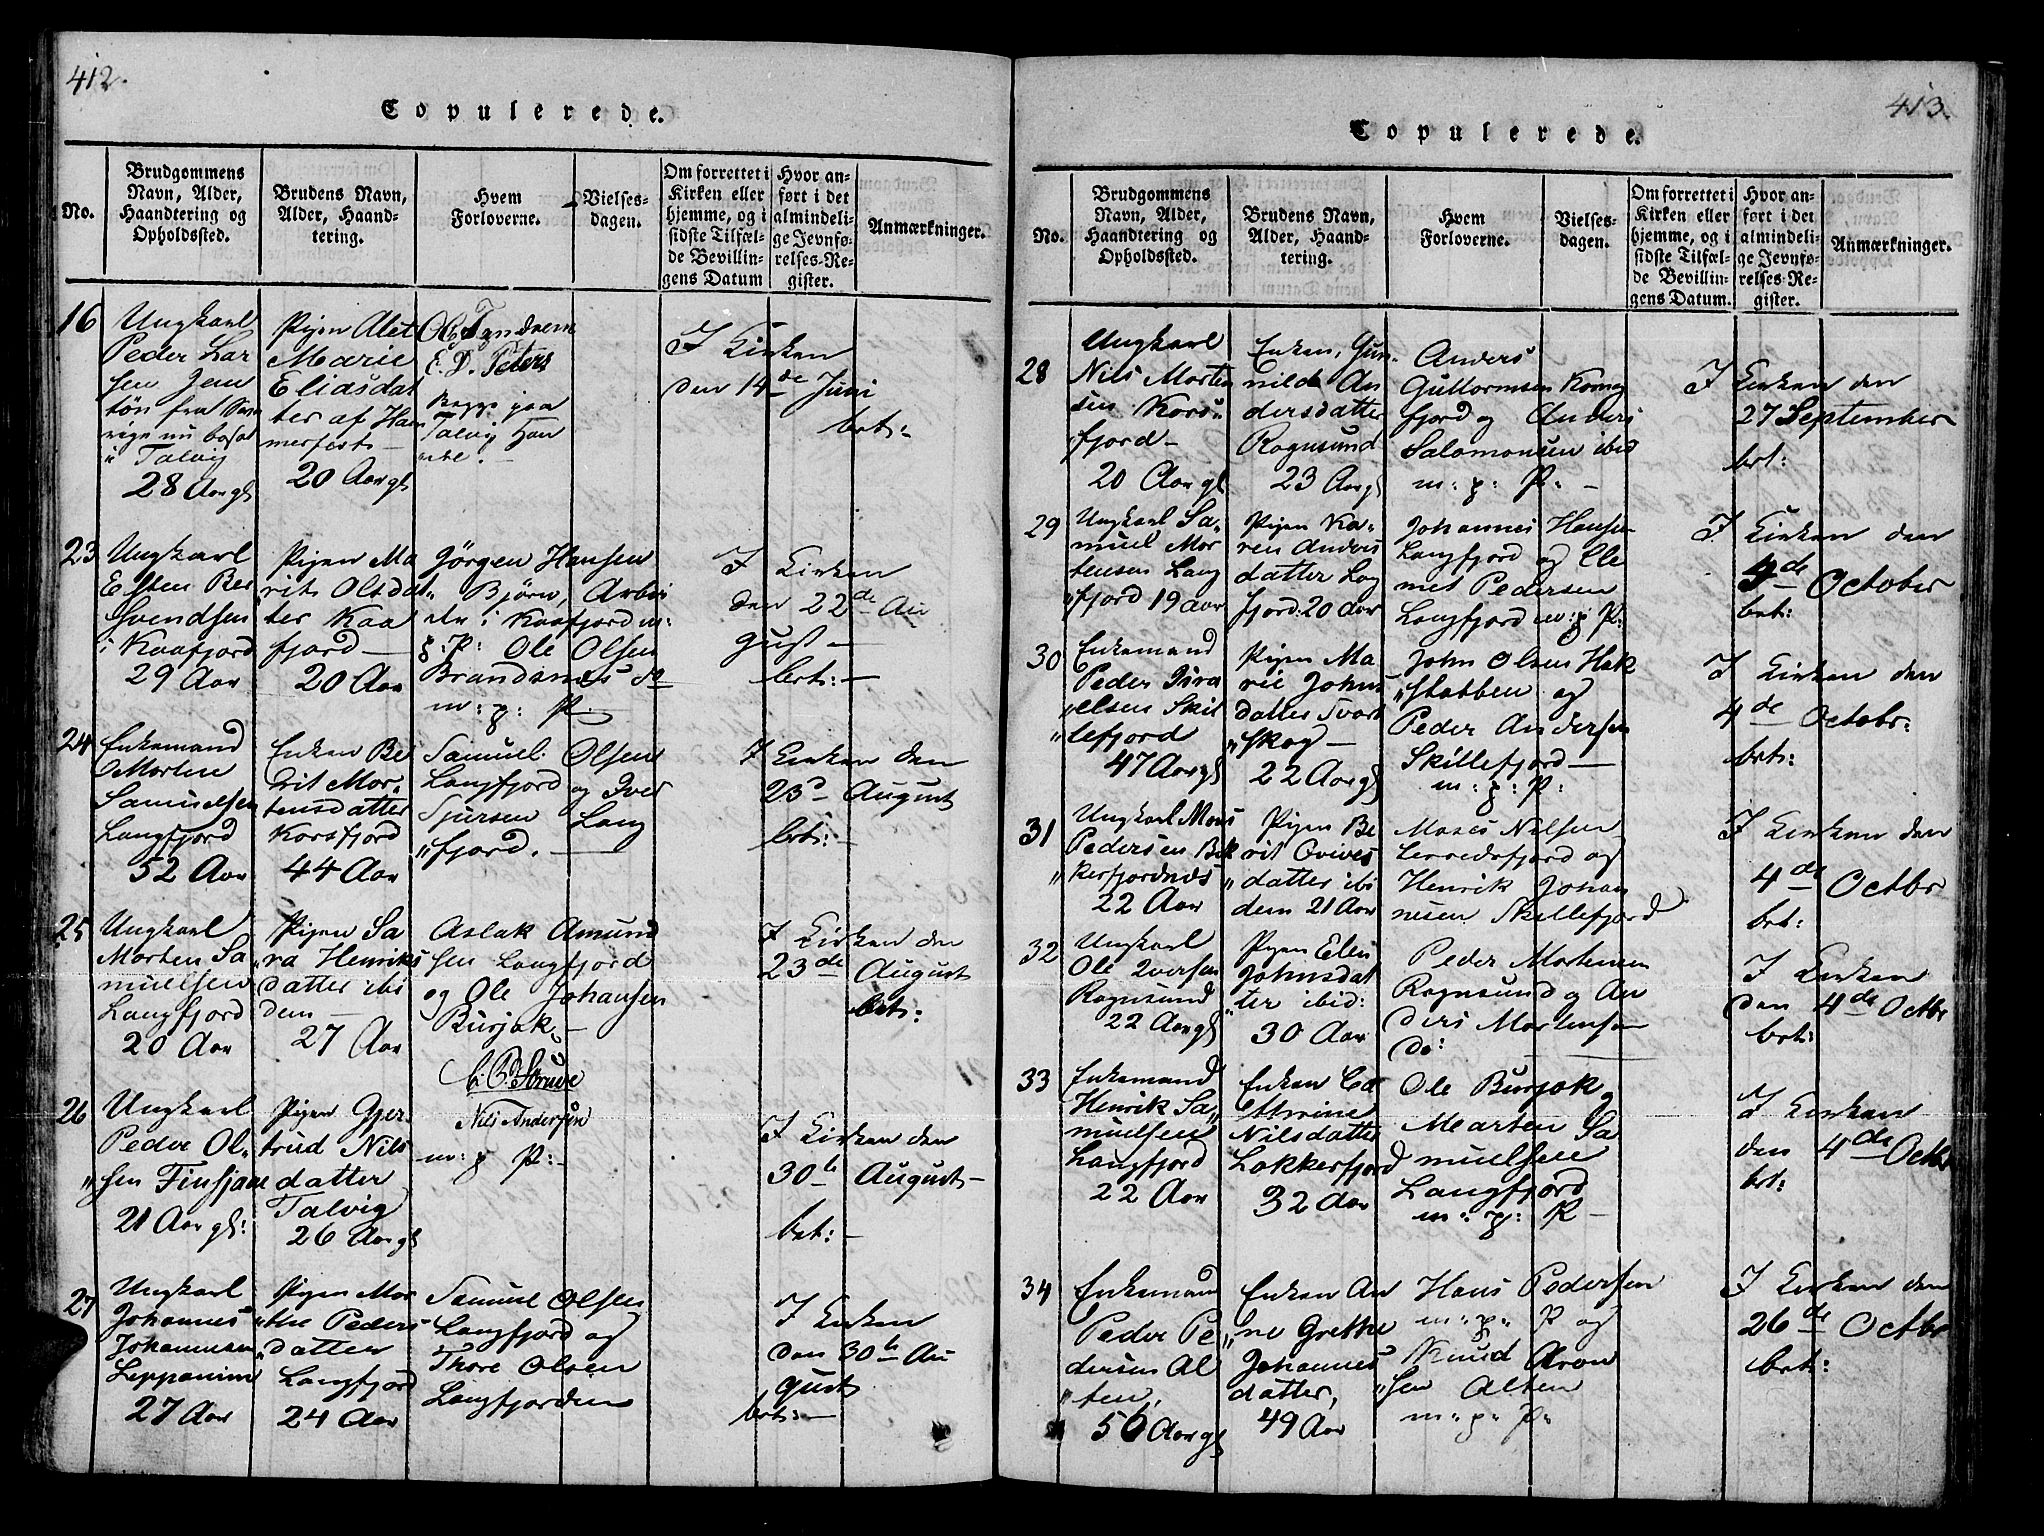 412.
Copulerede.
No.
Brudgommens
Navn, Alder,
Haandtering og
Opholdssted.
Brudens Navn,
Alder, Haand-
tering.
Hvem
Forloverne.
Vielses-
dagen.
Om forrettet i
Kirken eller
hjemme, og i
sidste Tilfæl-
de Bevillin-
gens Datum
Hvor an-
ført i det
almindeli-
ge Jevnfø-
relses-Re-
gister.
Anmærkninger.
16
Ungkarl
Peder Lar
sen Jem
tøn fra
rige nu bosat
Talvig
28 Aar gl
Pigen Alet
Marie
Eliasdat
ter af Ham
merfest
20 Aar gl
E. D. Peters
begge paa
Talvig Han
del.
I Kirken
den 14de Juni
brt:
23
Ungkarl
Esten Ber
Svendsen
i Kaafjord
29 Aar
Pigen Ma
rit Olsdat
ter Kaa
fjord
20 Aar
Jørgen Hansen
Bjørn, Arbei
der i Kaafjord m:
p: P: Ole Olsen
Brandsnes
m: p: P.
I Kirken
den 22de Au
gust
brt:
24
Enkemand
Morten
Samuelsen
Langfjord
52 Aar
Enken Be
rit Mor
tensdatter
Korsfjord
44 Aar
Samuel Olsen
Langfjord og Iver
Sjursen Lang
fjord.
I Kirken den
23d August
brt:
25
Ungkarl
Morten Sa
muelsen
Langfjord
20 Aar
Pigen Sa
ra Henriks
datter ibi
dem
27 Aar
Aslak Amund
sen Langfjord
og Ole Johansen
Burjok
I Kirken den
23de August
brt:
26
Ungkarl
Peder Ol
sen Finsjane
21 Aar gl:
Pigen Gjer
trud Nils
datter
Talvig
26 Aar gl
Nils Andersen
m: p P:
I Kirken den
30te August
brt:
27
Ungkarl
Johannes
Johannesen
Leppanim
27 Aar
Pigen Mar
the Peders
datter
Langfjord
24 Aar
Samuel Olsen
Langfjord og
Thore Olsen
Langfjorden
I Kirken
den 30te Au
gust
brt:
413.
Copulerede.
No.
Brudgommens
Navn, Alder,
Haandtering og
Opholdssted.
Brudens Navn,
Alder, Haand-
tering.
Hvem
Forloverne.
Vielses-
dagen.
Om forrettet i
Kirken eller
hjemme, og i
sidste Tilfæl-
de Bevillin-
gens Datum.
Hvor an-
ført i det
almindeli-
ge Jevnfø-
relses-Re-
gister.
Anmærkninger.
28
Ungkarl
Nils Morten
sen Kors
fjord
20 Aar gl
Enken, Gun
nilde An
dersdatter
Rognsund
23 Aar gl
Anders
Guttormsen Komag
fjord og Anders
Salomonsen ibid
m: p: P:
I Kirken den
27 September
brt:
29
Ungkarl Sa
muel Mor
tensen Lang
fjord 19 aar
Pigen Ka
ren Anders
datter Lag
fjord: 20 Aar
Johannes Hansen
Langfjord og Cle
met Pedersen
Langfjord m: p P:
I Kirken den
4de October
brt:
30
Enkemand
Peder Isra
elsen Skil
lefjord
47 Aar gl
Pigen Ma
rie Johns
datter Svart
skog
22 Aar gl
John Olsen Hak
stabben og
Peder Andersen
Skillefjord
m: p: P:
I Kirken den
4de Octobr:
brt:
31
Ungkarl Moses
Pedersen Bek
kerfjordnæs
22 Aar
Pigen Be
rit Qvives
datter ibi
dem 21 Aar
Moses Nilsen
Leeredsfjord og
Henrik Johan
nesen Skillefjord
I Kirken den
4de Octbr
brt:
32
Ungkarl
Ole Iversen
Rognsund
22 Aar gl
Pigen Elen
Johnsdat
ter ibid:
30 Aar
Peder Mortensen
Rognsund og An
ders Mortensen
do:
I Kirken
den 4de Octbr
brt:
33
Enkemand
Henrik Sa
muelsen
Langfjord
22 Aar
Enken Ca
thrine
Nilsdatter
Lokkerfjord
32 Aar
Ole Burjok og
Morten Sa
muelsen
Langfjord
m: p: P
I Kirken
den 4de Octbr
brt:
34
Enkemand
Peder Pe
dersen Al
ten,
56 Aar gl
Enken An
ne Grethe
Johannes
datter,
49 Aar
Hans Pedersen
m: p: P og
Knud Aron
sen Alten
m: p: P:
I Kirken den
26de Octbr
brt: